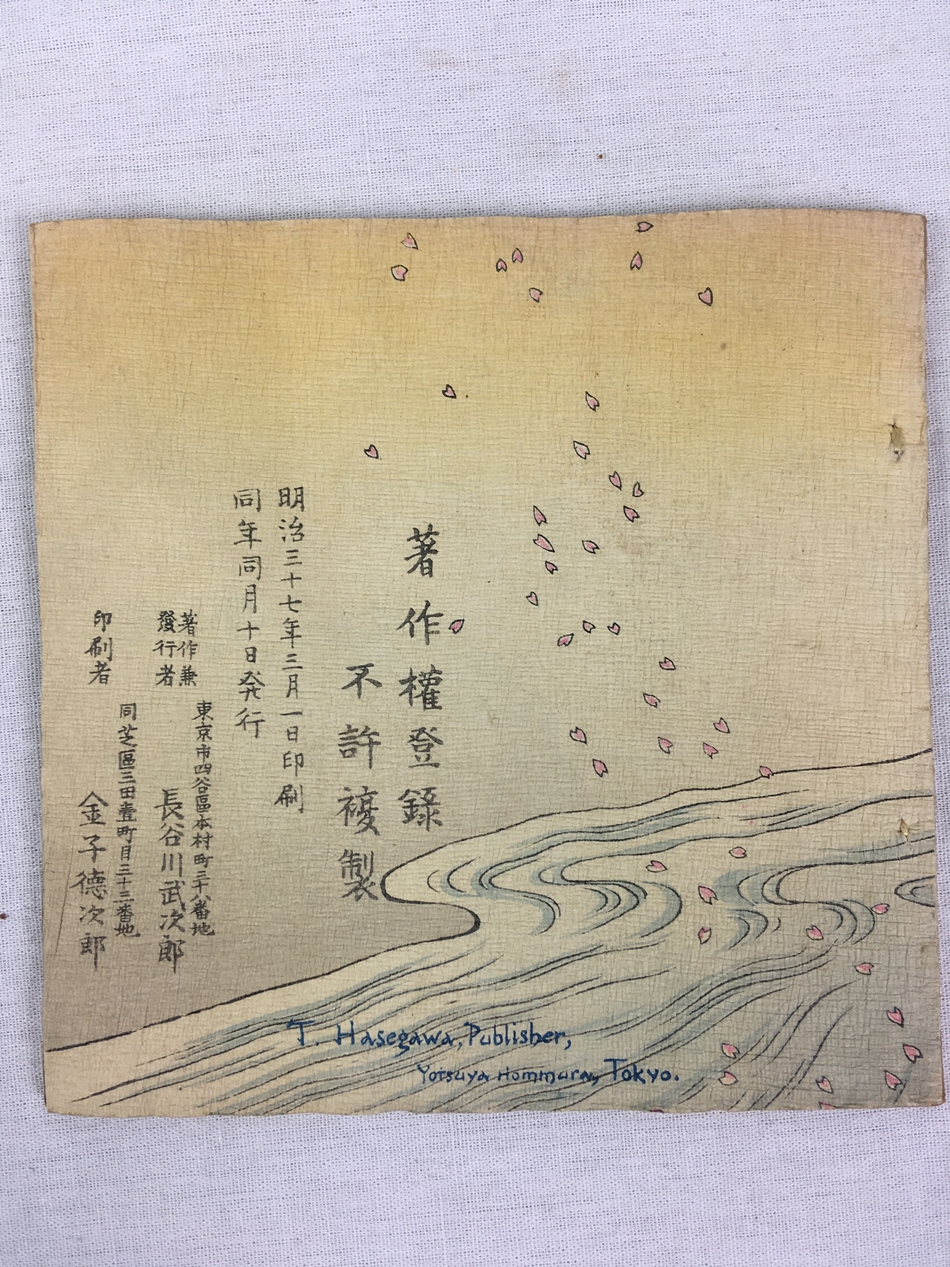 著作權登錄
不許複製
明治三十七年三月一日印刷
同年同月十日発行
著作兼
發行者
東京市四谷區本村町三十八番地
長谷川武次郎
印刷者
同芝區三田壹町目三十二番地
金子德次郎
T. Hasegawa, Publisher,
Yotsuya Hommura, Tokyo.